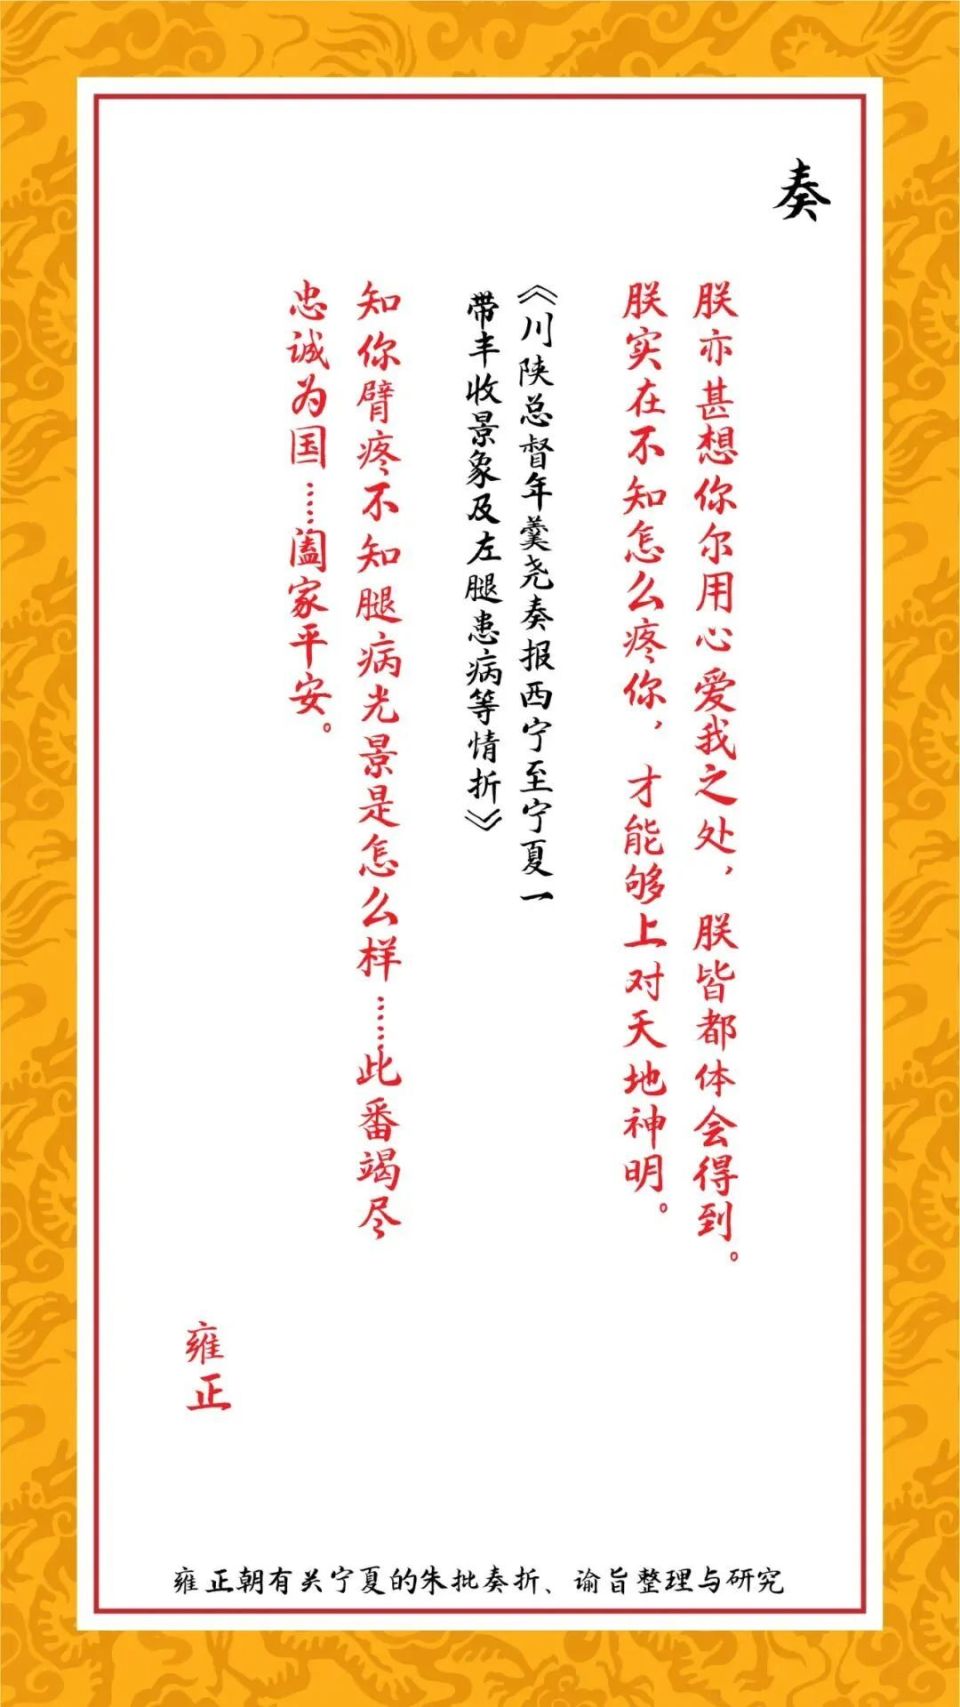 奏
朕亦甚想你尔用心爱我之处，朕皆都体会得到。
朕实在不知怎么疼你，才能够上对天地神明。
《川陕总督年羹尧奏报西宁至宁夏一
带丰收景象及左腿患病等情折》
知你臂疼不知腿病光景是怎么样……此番竭尽
忠诚为国……阖家平安。
雍正
雍正朝有关宁夏的朱批奏折、谕旨整理与研究